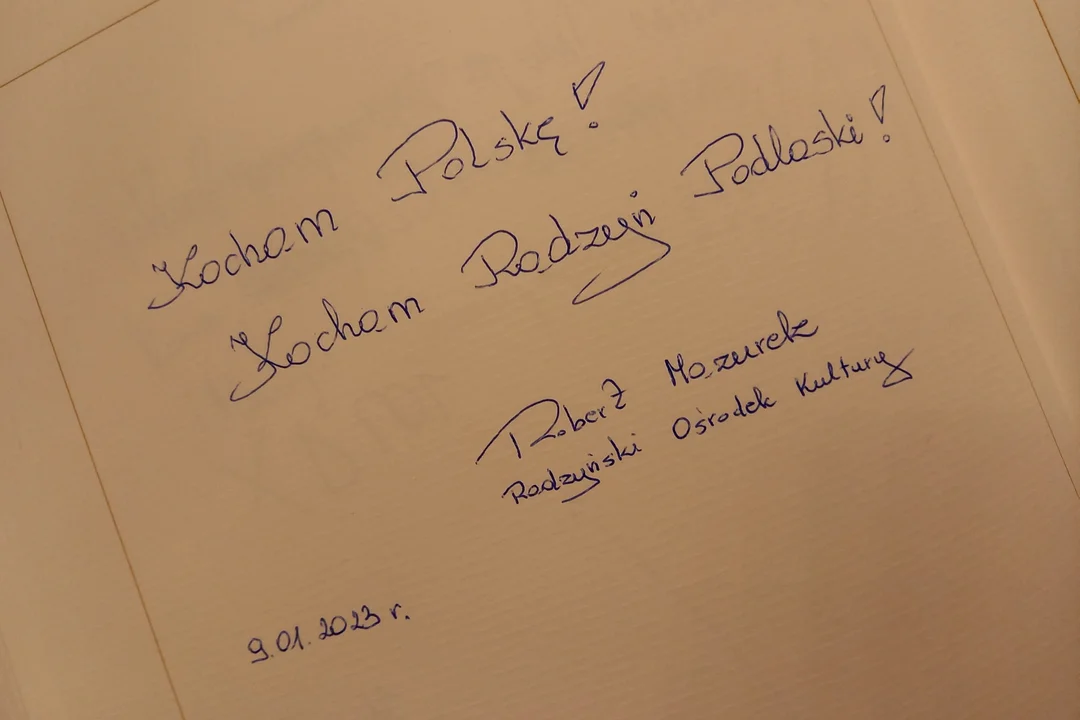 Kocham Polskę!
Kocham Radzyń Podlaski!
Robert Mazurek
Radzyński Ośrodek Kultury
9.01.2023 r.